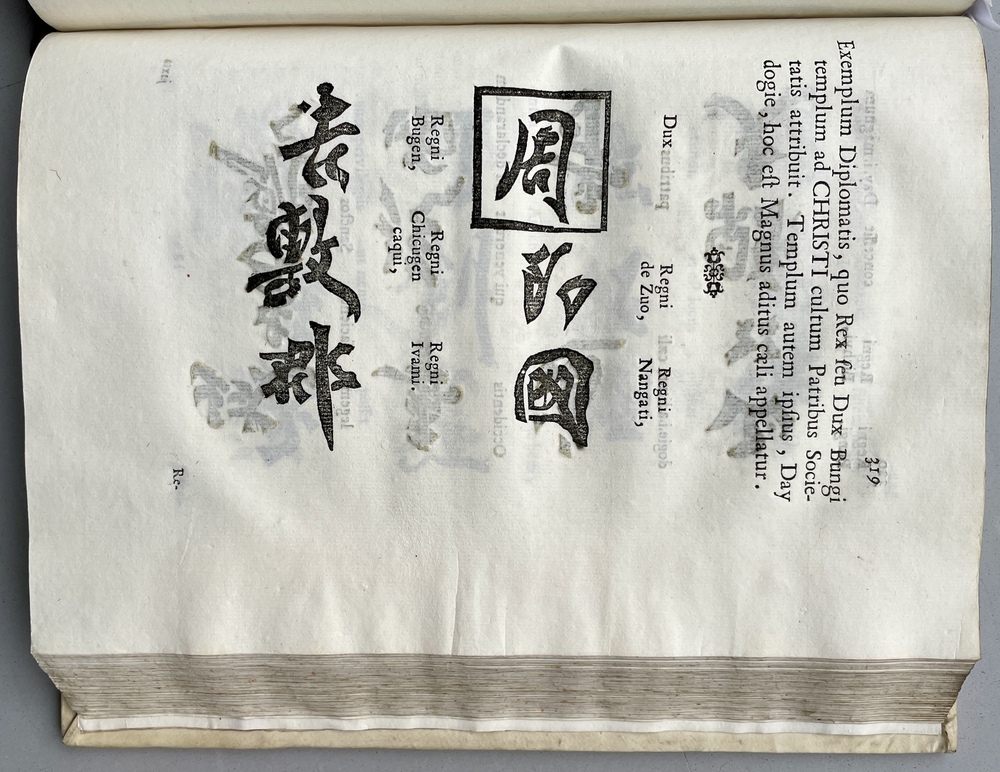 319
Exemplum Diplomatis, quo Rex ſeu Dux Bungi
templum ad CHRISTI cultum Patribus Socie-
tatis attribuit. Templum autem ipſius, Day
dogie, hoc eſt Magnus aditus cæli appellatur.
Dux Regni Regni
de Zuo, Nangati,
周 公 國
Regni Regni Regni
Bugen, Chicugen Ivami.
caqui,
Re-